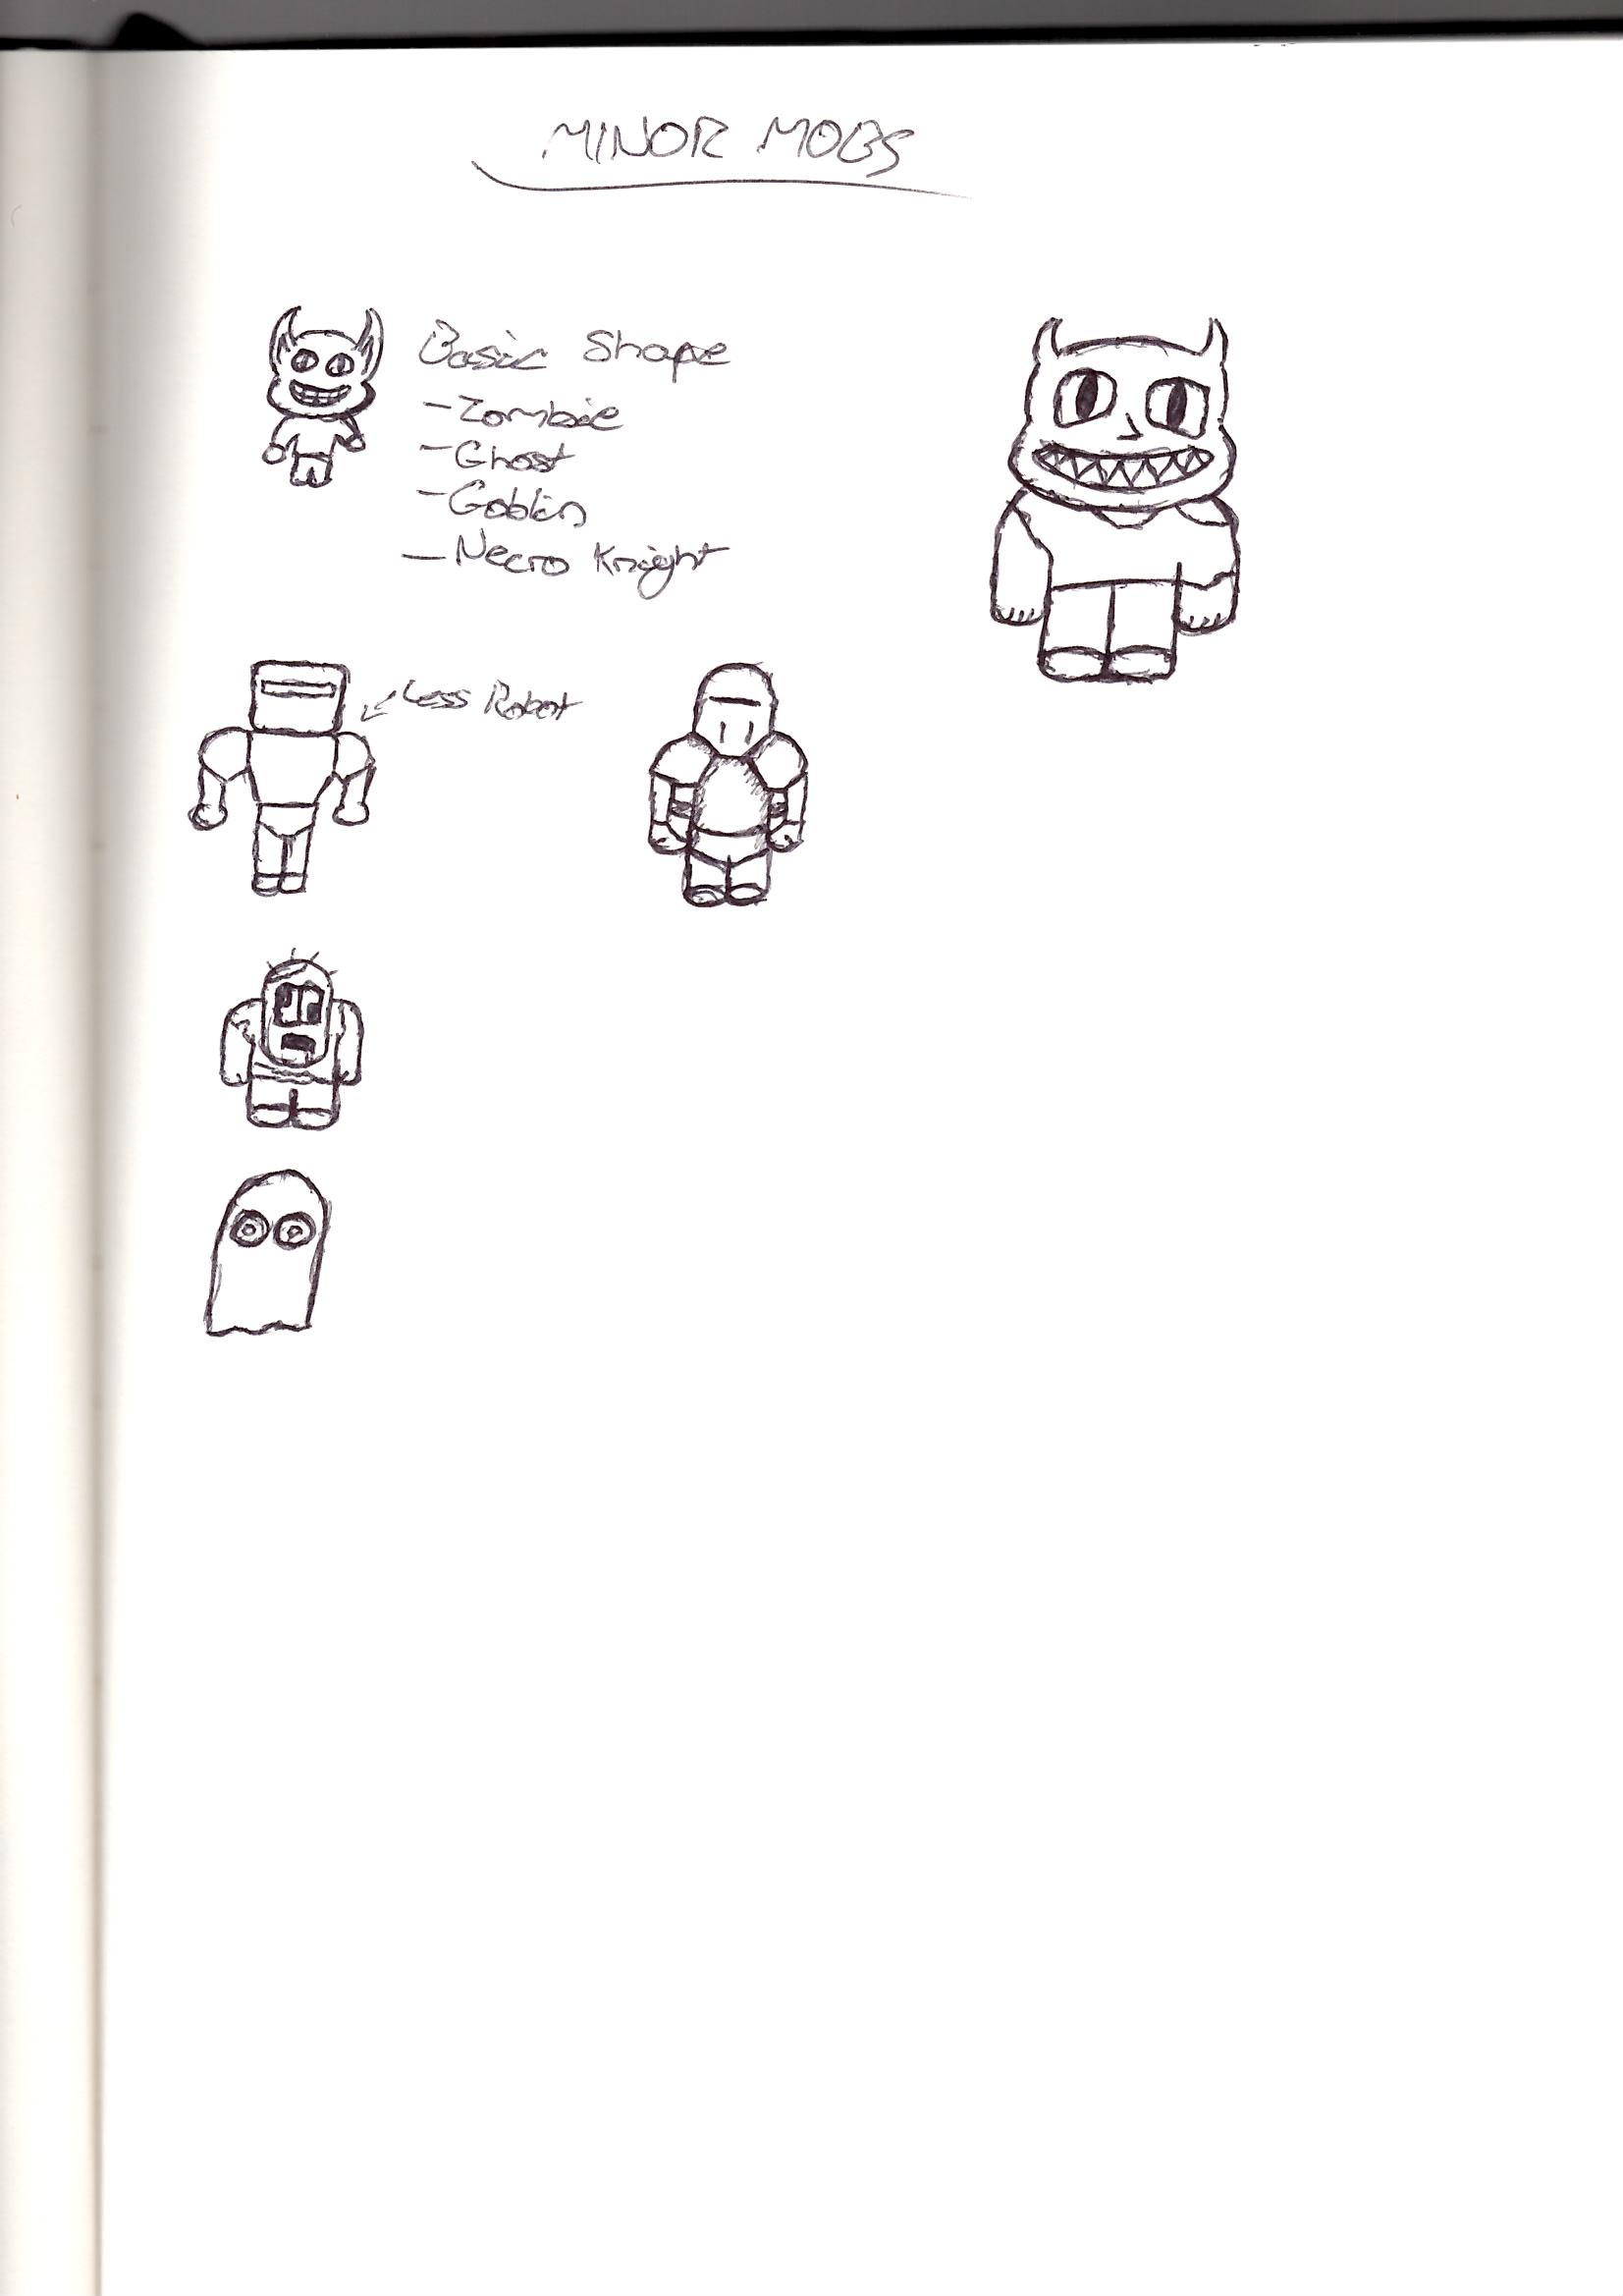 MINOR MOBS
Basic Shape
- Zombie
- Ghost
- Goblin
- Necro Knight
Less Robot